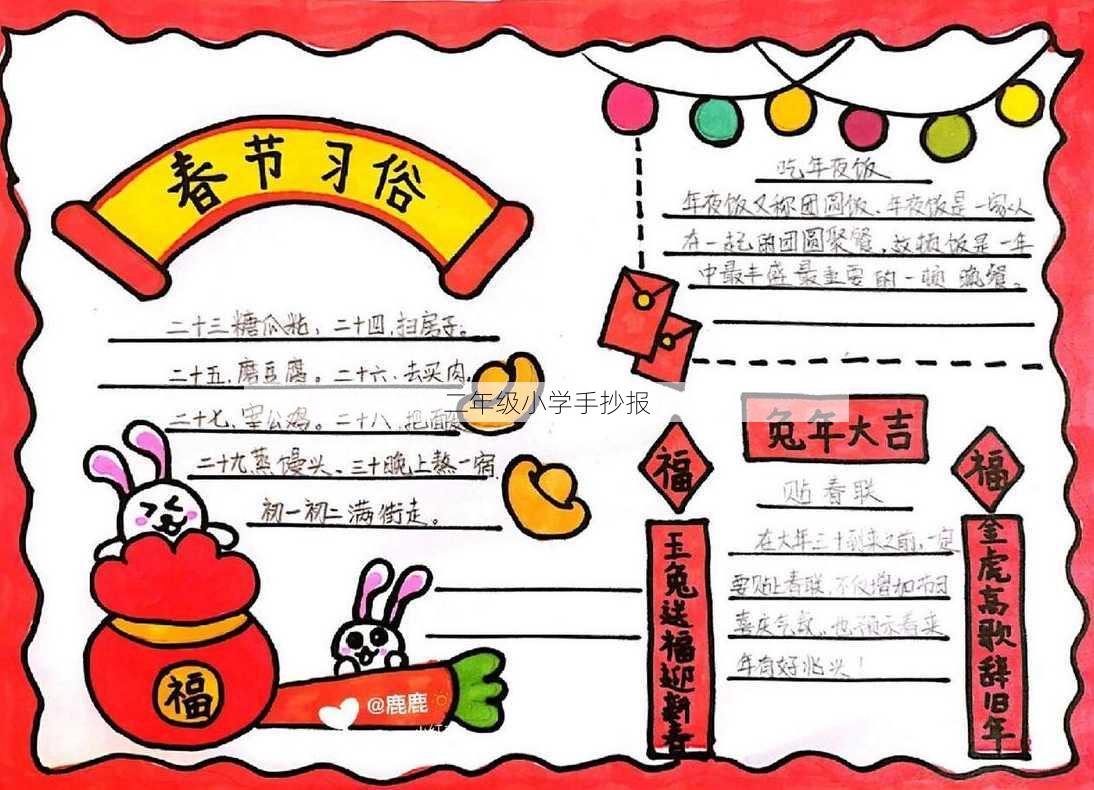 春节习俗
二十三糖瓜粘，二十四，扫房子。
二十五，磨豆腐。二十六，去买肉，
二十七，宰公鸡。二十八，把面
二十九蒸馒头、三十晚上熬一宿
初一初二满街走。
福
@鹿鹿
二年级小学手抄报
吃年夜饭
年夜饭又称团圆饭、年夜饭是一家人
在一起的团圆聚餐，这顿饭是一年
中最丰盛最重要的一顿晚餐。
兔年大吉
福
福
玉兔送福迎新春
金虎高歌辞旧年
贴春联
在大年三十到来之前，一定
要贴上春联，不仅增加节日
喜庆气氛，也预示着来
年有好兆头！